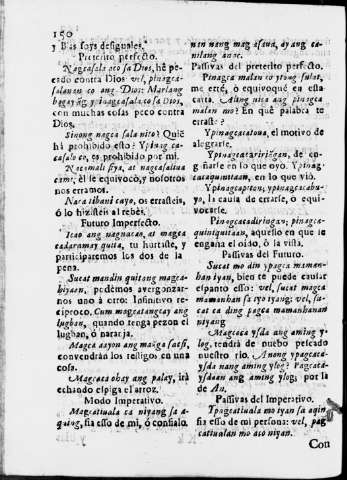 150
y Bas soys desiguales.
Preterito perfecto.
Nagcasala aco sa Dios, hè pe-
cado contra Dios vel, pinagca-
salanan co ang Dios: Marlang
begayñg ypinagcasala co sa Dios,
con muchas cosas peco contra
Dios.
Sinong nagca sala nito? Quiê
hà prohibido esto? Ypinag ca-
casalo co, es prohibido por mi.
Nacamali sya, at nagcasaliua
cami, èl se equivocò, y nosotros
nos erramos.
Nara tibani cayo, os errasteis,
ò lo hizisteis al rebès.
Futuro Imperfecto.
Icao ang nagnacao, at magca
cadaramay quita, tu hurtaste, y
participaremos los dos de la
pena.
Sucat mandin quitang magca-
hiyaan, podèmos avergonzar-
nos uno à otro: Infinitivo re-
ciproco. Cum mogcatangcay ang
lugban, quando tenga pezon el
lugban, ò naranja.
Magca ayon ang manga sacsi,
convendràn los testigos en una
cosa.
Magcaca ohay ang palay, irà
echando espiga el arroz.
Modo Imperativo.
Magcatiuala ca niyang sa a-
quing, fia esso de mi, ò confialo.
nin nang mag asaua, ay ang ca-
nilang anac.
Passivas del preterito perfecto.
Pinagca malan co ytong sulat,
me errè, ò equivoquè en esta
carta. Aling uica ang pinagca
malan mo? En què palabra te
erraste?
Ypinagcacatoua, el motivo de
alegrarse.
Ypinagcataririñgan, de en-
gañarse en lo que oyò. Ypinag-
cacaquintaan, en lo que viò.
Ypinagcapten, ypinagcacabu-
yo, la causa de errarse, ò equi-
vocarse.
Pinagcatadiringan; pinagca-
quintquintaan, aquello en que se
engaña el oido, ò la vista.
Passivas del Futuro.
Sucat mo din ypagca maman-
han iyan, bien te puede causar
espanto esso: vel, sucat magca
mamanhan sa iyo iyang; vel, su-
cat ca ding pagca mamanhanan
niyang
Magcaca ysda ang aming y
log, tendrà de nuebo pescado
nuestro rio. Anong ypagcaca-
ysda nang aming ylog? Pagcaca-
ysdaan ang aming ylog; por la
de An.
Passivas del Imperativo.
Ypagcatiuala mo iyan sa aqin
fia esso de mi persona: vel, pag
catiualan mo aco niyang.
Con